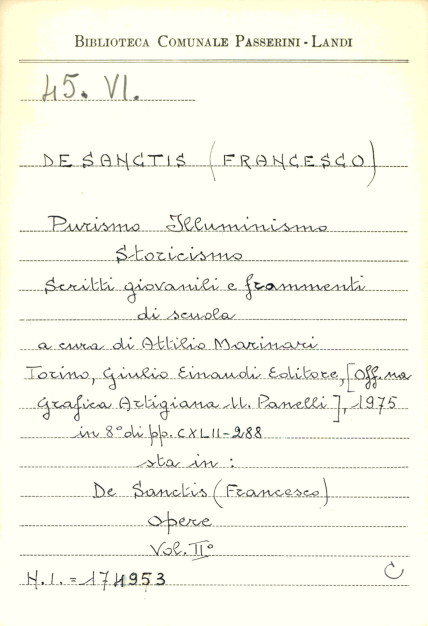 BIBLIOTECA COMUNALE PASSERINI - LANDI
45. VI.
DE SANCTIS (FRANCESCO)
Purismo Illuminismo
Storicismo
Scritti giovanili e frammenti
di scuola
a cura di Attilio Marinari
Torino, Giulio Einaudi Editore, [Off.na
Grafica Artigiana U. Panelli], 1975
in 8° di pp. CXLII-288
sta in:
De Sanctis (Francesco)
Opere
Vol. II°
N.I. = 174953
C